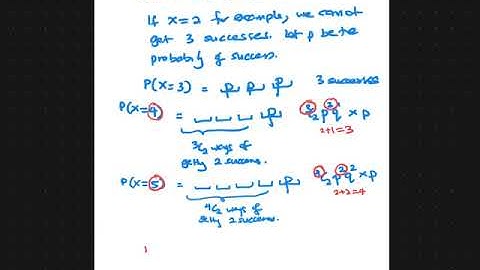 If X=2 for example, we cannot
get 3 successes. Let p be the
probability of success.
P(X=3) = p p p 3 successes
P(X=4) = _ _ _ p ³C₂ p²q × p
2+1=3
³C₂ ways of
getting 2 success.
P(X=5) = _ _ _ _ p ⁴C₂ p²q² × p
2+2=4
⁴C₂ ways of
getting 2 success.